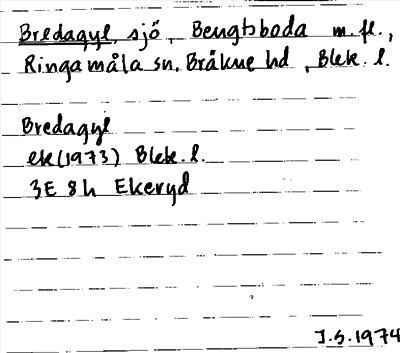 Bredagyl, sjö, Bengtsboda m. fl.,
Ringamåla sn, Bräkne hd, Blek. l.
Bredagyl
ek (1973) Blek. l.
3E 8h Ekeryd
J.S. 1974